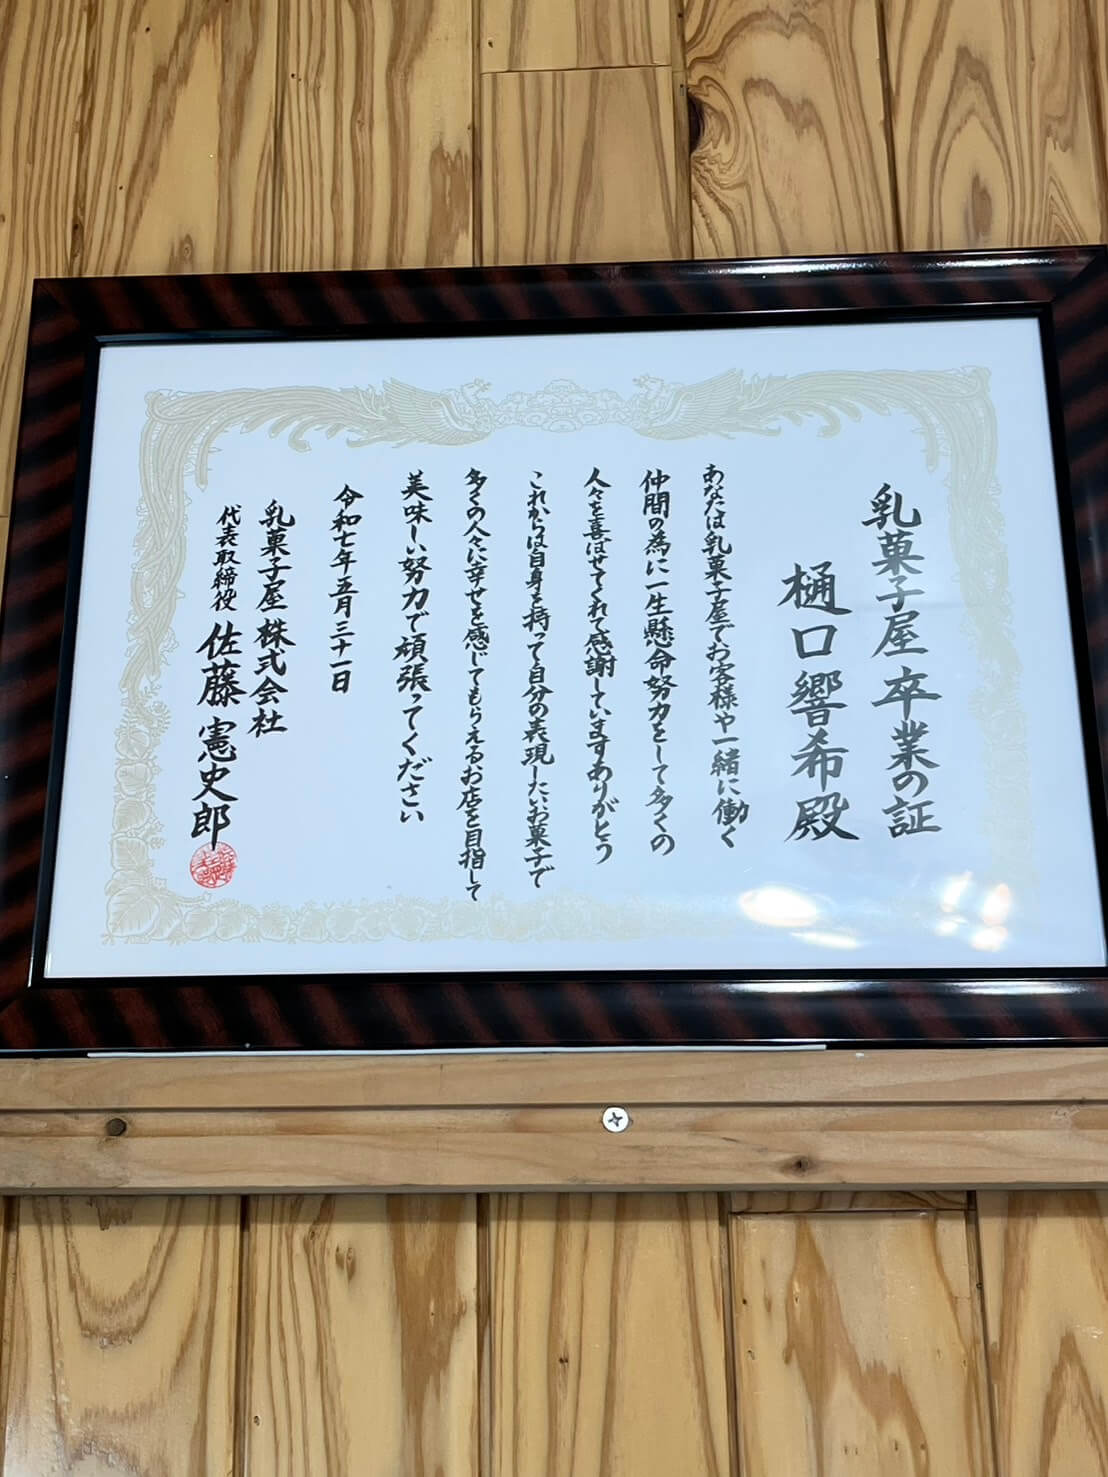 乳菓子屋 卒業の証
樋口響希殿
あなたは乳菓子屋でお客様や一緒に働く
仲間の為に一生懸命努力をして多くの
人々を喜ばせてくれて感謝していますありがとう
これからは自身を持って自分の表現したいお菓子で
多くの人々に幸せを感じてもらえるお店を目指して
美味しい努力で頑張ってください
令和七年五月三十一日
乳菓子屋 株式会社
代表取締役 佐藤 憲史郎